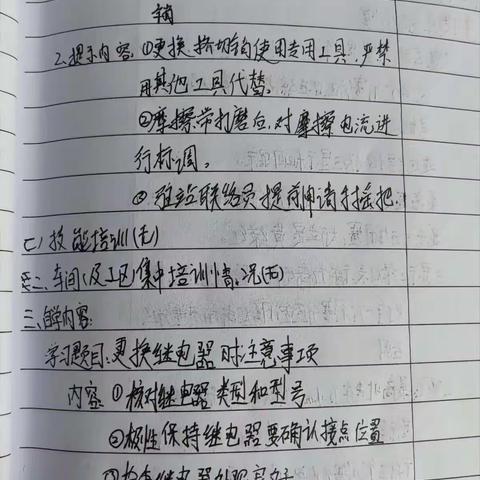 销
2.提示内容:①更换挤切销使用专用工具,严禁
用其他工具代替。
②摩擦带打磨后,对摩擦电流进
行标调。
③驻站联络员提前申请手摇把.
(二)技能培训(无)
二、车间(及工区)集中培训情况(无)
三、自学内容:
学习题目:更换继电器时注意事项
内容:①核对继电器类型和型号
②极性保持继电器要确认接点位置
③检查继电器外观完好